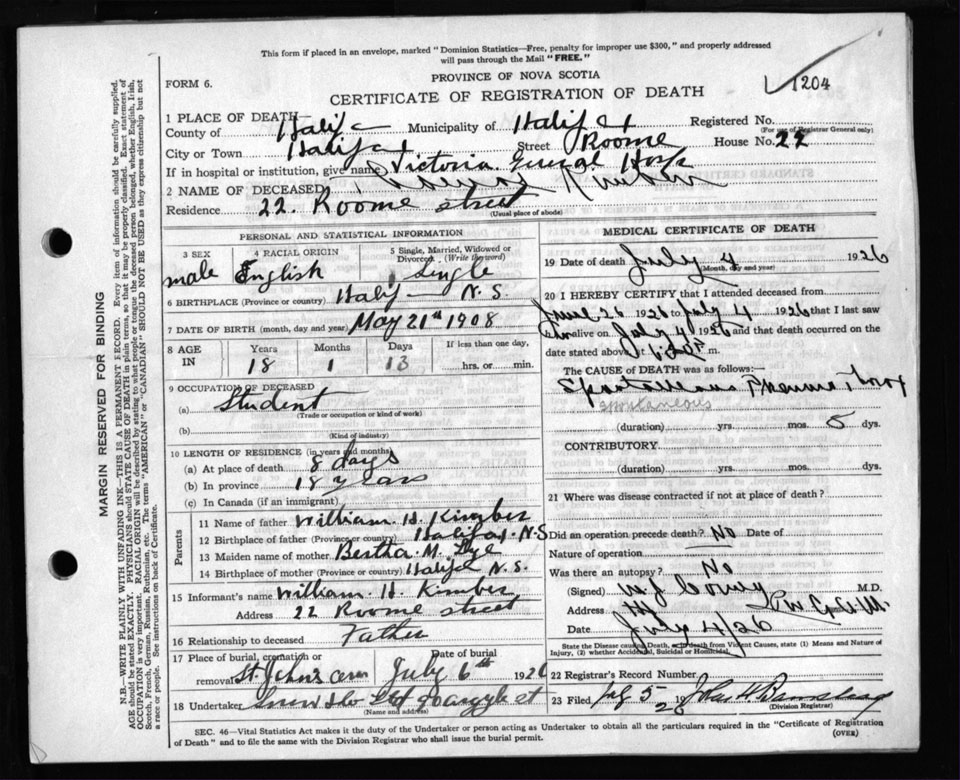 This form if placed in an envelope, marked "Dominion Statistics—Free, penalty for improper use $300," and properly addressed
will pass through the Mail "FREE."
PROVINCE OF NOVA SCOTIA
FORM 6.
1204
CERTIFICATE OF REGISTRATION OF DEATH
1 PLACE OF DEATH—
County of Halifax Municipality of Halifax Registered No.
(For use of Registrar General only)
City or Town Halifax Street Roome House No. 22
If in hospital or institution, give name Victoria General Hosp
2 NAME OF DECEASED
Residence 22. Roome street
(Usual place of abode)
PERSONAL AND STATISTICAL INFORMATION
3 SEX male
4 RACIAL ORIGIN English
5 Single, Married, Widowed or Divorced, (Write the word) Single
6 BIRTHPLACE (Province or country) Halif N.S.
7 DATE OF BIRTH (month, day and year) May 21st 1908
8 AGE IN Years Months Days If less than one day,
18 1 13 hrs. or min.
9 OCCUPATION OF DECEASED
(a) Student
(Trade or occupation or kind of work)
(b)
(Kind of industry)
10 LENGTH OF RESIDENCE (in years and months)
(a) At place of death 8 days
(b) In province 18 years
(c) In Canada (if an immigrant)
Parents
11 Name of father William. H. Kimber
12 Birthplace of father (Province or country) Halifax. N.S
13 Maiden name of mother Bertha. M.
14 Birthplace of mother (Province or country) Halifax N.S.
15 Informant's name William. H. Kimber
Address 22 Roome street
16 Relationship to deceased Father
17 Place of burial, cremation or removal St. John's cem Date of burial July 6th 1926
18 Undertaker Snow & Co Ltd Argyle st
(Name and address)
MEDICAL CERTIFICATE OF DEATH
19 Date of death July 4 1926
(Month, day and year)
20 I HEREBY CERTIFY that I attended deceased from
June 26 1926 to July 4 1926 that I last saw
him alive on July 4 1926 and that death occurred on
date stated above m.
The CAUSE OF DEATH was as follows:—
Spontaneous Pneumothorax
spontaneous
(duration) yrs. mos. 5 dys.
CONTRIBUTORY
(duration) yrs. mos. dys.
21 Where was disease contracted if not at place of death?
Did an operation precede death? No Date of
Nature of operation
Was there an autopsy? No
(Signed) M.D.
Address
Date July 4/26
State the Disease causing Death, or in death from Violent Causes, state (1) Means and Nature of
Injury, (2) whether Accidental, Suicidal or Homicidal.
22 Registrar's Record Number
23 Filed July 5 1926 John H. 
(Division Registrar)
SEC. 46—Vital Statistics Act makes it the duty of the Undertaker or person acting as Undertaker to obtain all the particulars required in the "Certificate of Registration
of Death" and to file the same with the Division Registrar who shall issue the burial permit.
(OVER)
MARGIN RESERVED FOR BINDING
N.B.—WRITE PLAINLY WITH UNFADING INK—THIS IS A PERMANENT RECORD. Every item of information should be carefully supplied.
AGE should be stated EXACTLY. PHYSICIANS should STATE CAUSE OF DEATH in plain terms, so that it may be properly classified. Exact statement of
OCCUPATION is very important. RACIAL ORIGIN will be described by stating to what people or tongue the deceased person belonged, whether English, Irish,
Scotch, French, German, Russian, Ruthenian, etc. The terms "AMERICAN" or "CANADIAN" SHOULD NOT BE USED as they express citizenship but not
a race or people. See instructions on back of Certificate.